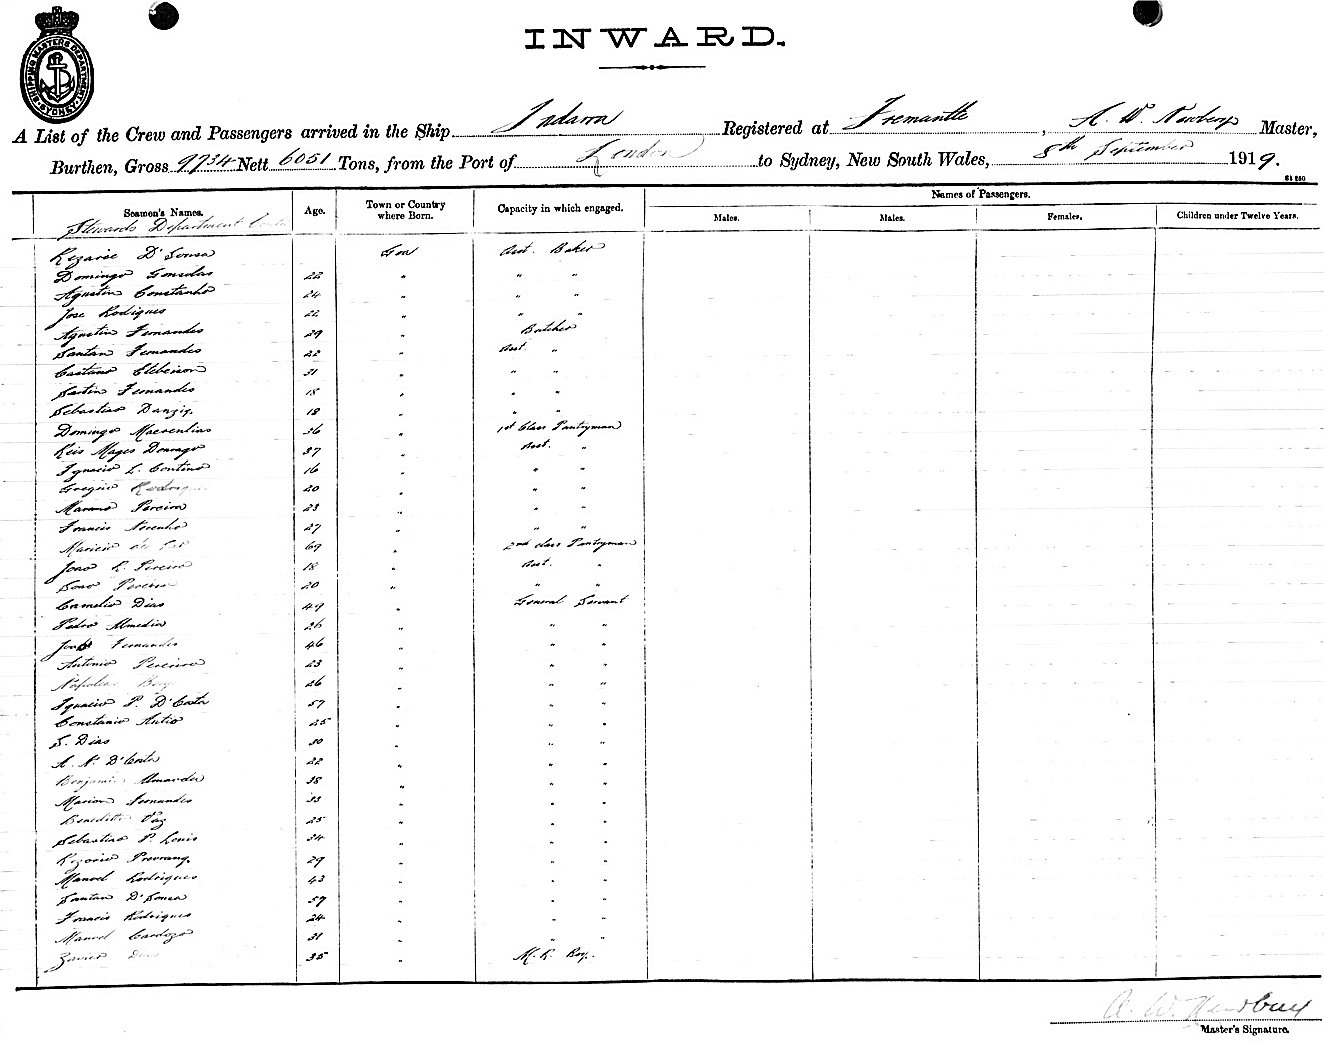 INWARD.
SHIPPING MASTERS DEPARTMENT SYDNEY
A List of the Crew and Passengers arrived in the Ship Indarra Registered at Fremantle, A. W. Newbery Master,
Burthen, Gross 9734 Nett 6051 Tons, from the Port of London to Sydney, New South Wales, 8th September 1919.
Names of Passengers.
Seamen's Names. Age. Town or Country where Born. Capacity in which engaged. Males. Males. Females. Children under Twelve Years.
Stewards Department
D'Sousa Goa Asst. Baker
Domingo Gonsalas 22 " " "
Agustin Constanho 24 " " "
Jose Rodigues 22 " " "
Agustin Fernandes 29 " Butcher
Santan Fernandes 22 " Asst. "
Caetano 31 " " "
Fernandes 18 " " "
Sebastiao Danzig. 18 " " "
Domingo 36 " 1st Class Pantryman
Reis Mages 37 " Asst. "
Ignacio L. Continô 16 " " "
20 " " "
Mariano Pereira 23 " " "
Francis Noronho 27 " " "
69 " 2nd class Pantryman
Joao R. Pereira 18 " Asst. "
Joao Pereira 20 " " "
Camelio Dias 49 " General Servant
Pedro Almedia 26 " " "
Fernandes 46 " " "
Antonio Pereira 23 " " "
Napoleao 26 " " "
Ignacio P. D'Costa 57 " " "
Constanio Antio 25 " " "
S. Dias 30 " " "
A. N. D'Costa 22 " " "
Benjamin 38 " " "
Marian Fernandes 33 " " "
Benedito Vaz 25 " " "
Sebastiao P. Louis 34 " " "
29 " " "
Manuel Rodrigues 43 " " "
Santan D'Sousa 59 " " "
Francis Rodrigues 24 " " "
Manuel Cardozo 31 " " "
Xavier Dias 35 " M. R. Boy.
A. W. Newbery
Master's Signature.